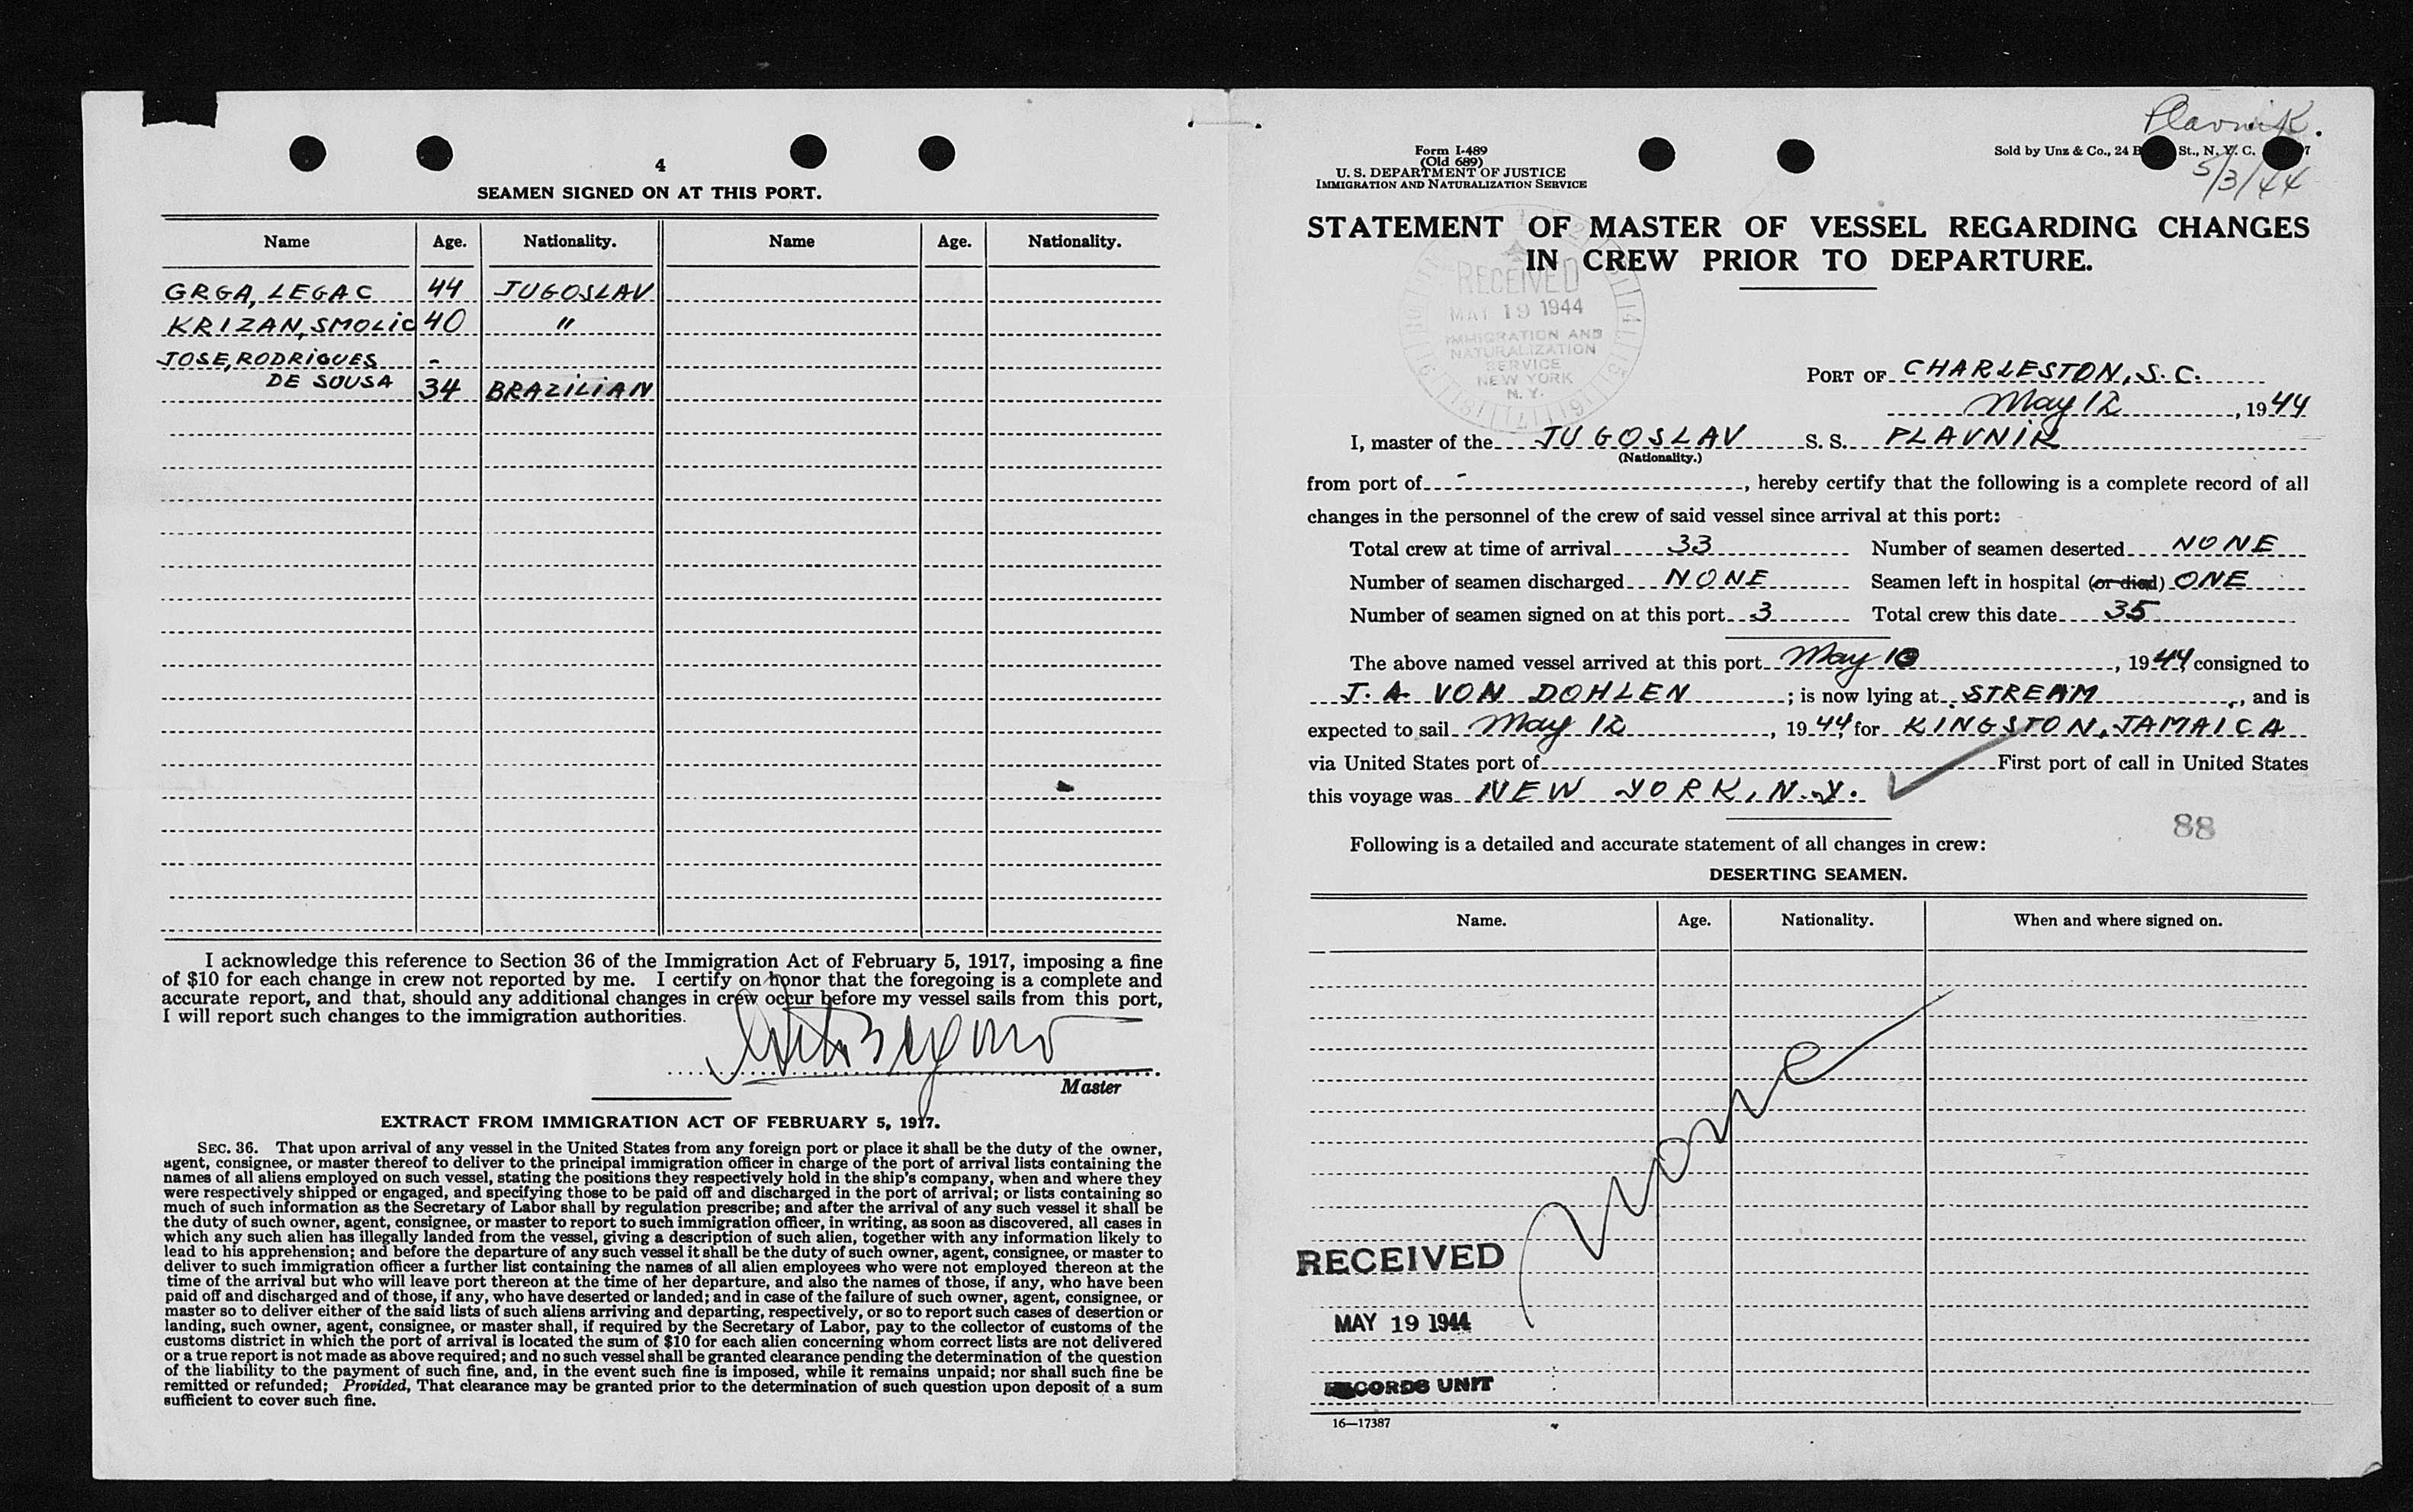 4
SEAMEN SIGNED ON AT THIS PORT.
Name Age. Nationality. Name Age. Nationality.
GRGA, LEGAC 44 JUGOSLAV
KRIZAN, SMOLIC 40 "
JOSE, RODRIGUES -
DE SOUSA 34 BRAZILIAN
I acknowledge this reference to Section 36 of the Immigration Act of February 5, 1917, imposing a fine
of $10 for each change in crew not reported by me. I certify on honor that the foregoing is a complete and
accurate report, and that, should any additional changes in crew occur before my vessel sails from this port,
I will report such changes to the immigration authorities.
Master
EXTRACT FROM IMMIGRATION ACT OF FEBRUARY 5, 1917.
SEC. 36. That upon arrival of any vessel in the United States from any foreign port or place it shall be the duty of the owner,
agent, consignee, or master thereof to deliver to the principal immigration officer in charge of the port of arrival lists containing the
names of all aliens employed on such vessel, stating the positions they respectively hold in the ship's company, when and where they
were respectively shipped or engaged, and specifying those to be paid off and discharged in the port of arrival; or lists containing so
much of such information as the Secretary of Labor shall by regulation prescribe; and after the arrival of any such vessel it shall be
the duty of such owner, agent, consignee, or master to report to such immigration officer, in writing, as soon as discovered, all cases in
which any such alien has illegally landed from the vessel, giving a description of such alien, together with any information likely to
lead to his apprehension; and before the departure of any such vessel it shall be the duty of such owner, agent, consignee, or master to
deliver to such immigration officer a further list containing the names of all alien employees who were not employed thereon at the
time of the arrival but who will leave port thereon at the time of her departure, and also the names of those, if any, who have been
paid off and discharged and of those, if any, who have deserted or landed; and in case of the failure of such owner, agent, consignee, or
master so to deliver either of the said lists of such aliens arriving and departing, respectively, or so to report such cases of desertion or
landing, such owner, agent, consignee, or master shall, if required by the Secretary of Labor, pay to the collector of customs of the
customs district in which the port of arrival is located the sum of $10 for each alien concerning whom correct lists are not delivered
or a true report is not made as above required; and no such vessel shall be granted clearance pending the determination of the question
of the liability to the payment of such fine, and, in the event such fine is imposed, while it remains unpaid; nor shall such fine be
remitted or refunded; Provided, That clearance may be granted prior to the determination of such question upon deposit of a sum
sufficient to cover such fine.
Plavnik.
5/3/44
Form I-489
(Old 689)
U. S. DEPARTMENT OF JUSTICE
IMMIGRATION AND NATURALIZATION SERVICE
Sold by Unz & Co., 24 B St., N. Y. C. 7
STATEMENT OF MASTER OF VESSEL REGARDING CHANGES
IN CREW PRIOR TO DEPARTURE.
RECEIVED
MAY 19 1944
IMMIGRATION AND
NATURALIZATION
SERVICE
NEW YORK
N. Y.
PORT OF CHARLESTON, S. C.
May 12, 1944
I, master of the JUGOSLAV S. S. PLAVNIK
(Nationality.)
from port of -, hereby certify that the following is a complete record of all
changes in the personnel of the crew of said vessel since arrival at this port:
Total crew at time of arrival 33 Number of seamen deserted NONE
Number of seamen discharged NONE Seamen left in hospital (or died) ONE
Number of seamen signed on at this port 3 Total crew this date 35
The above named vessel arrived at this port May 10, 1944 consigned to
J. A. VON DOHLEN; is now lying at STREAM, and is
expected to sail May 12, 1944, for KINGSTON, JAMAICA
via United States port of First port of call in United States
this voyage was NEW YORK, N. Y.
88
Following is a detailed and accurate statement of all changes in crew:
DESERTING SEAMEN.
Name. Age. Nationality. When and where signed on.
None
RECEIVED
MAY 19 1944
RECORDS UNIT
16—17387